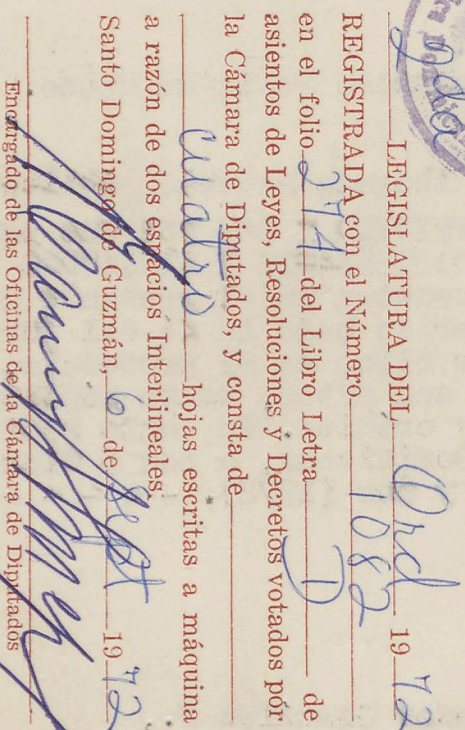 2da LEGISLATURA DEL Ord 1972
REGISTRADA con el Número 1082
en el folio 274 del Libro Letra D de
asientos de Leyes, Resoluciones y Decretos votados por
la Cámara de Diputados, y consta de
cuatro hojas escritas a máquina
a razón de dos espacios Interlineales
Santo Domingo de Guzmán, 6 de Sept 1972
Encargado de las Oficinas de la Cámara de Diputados